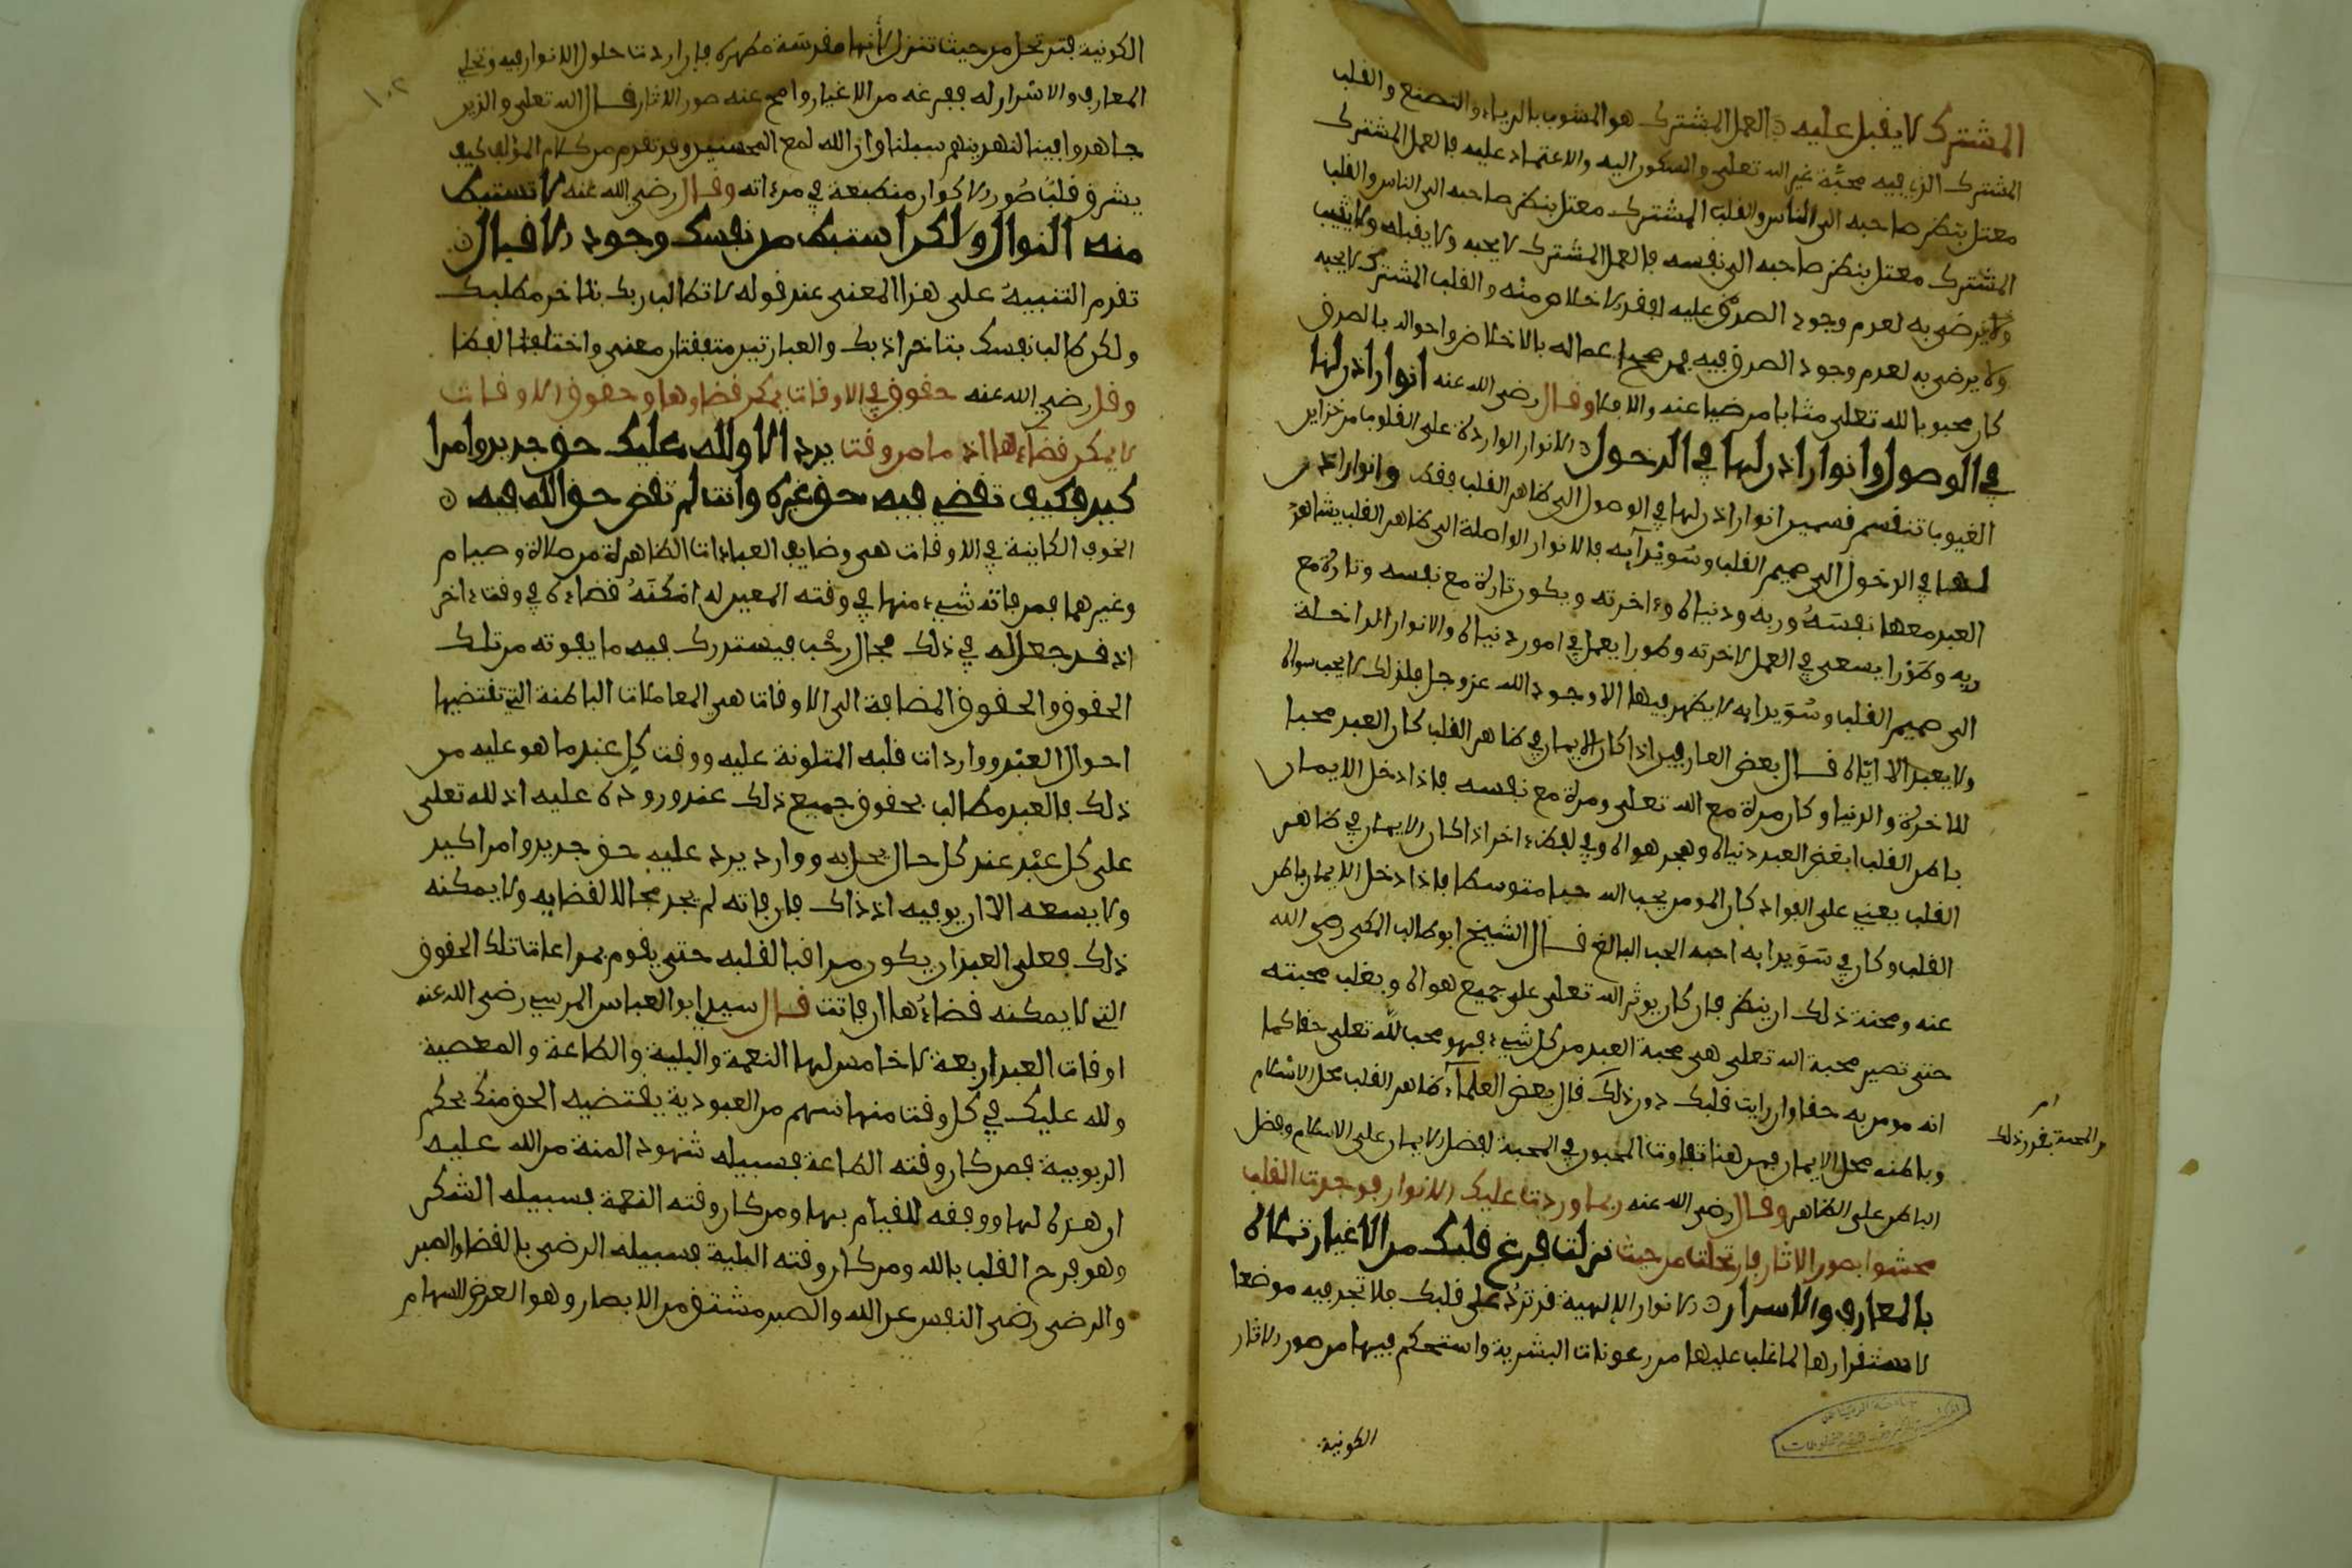 المشترك لا يقبل عليه العمل المشترك هو المشوب بالرياء والتصنع والقلب
المشترك الذي فيه محبة غير الله تعلى والسكون اليه والاعتماد عليه فالعمل المشترك
معتل بنظر صاحبه الى الناس والقلب المشترك معتل بنظر صاحبه الى الناس والقلب
المشترك معتل بنظر صاحبه الى نفسه فالعمل المشترك لا يحبه ولا يقبله ولا يثيب
ولا يرضى به لعدم وجود الصدق عليه لفقد الاخلاص منه والقلب المشترك لا يحبه
ولا يرضى به لعدم وجود الصدق فيه فمن صحح اعماله بالاخلاص واحواله بالصدق
كان محبوبا لله تعلى مثابا مرضيا عنه والا فلا وقال رضي الله عنه انوار اذن لها
في الوصول وانوار اذن لها في الدخول الانوار الواردة على القلوب من خزاين
الغيوب تنقسم قسمين انوار اذن لها في الوصول الى ظاهر القلب فقط وانوار اذن
لها في الدخول الى صميم القلب وسويدآيه فالانوار الواصلة الى ظاهر القلب يشاهد
العبد معها نفسه وربه ودنياه وءاخرته ويكون تارة مع نفسه وتارة مع
ربه وطورا يسعى في العمل لاخرته وطورا يعمل في امور دنياه والانوار الداخلة
الى صميم القلب وسويدايه لا يظهر فيها الا وجود الله عز وجل فلذلك لا يحب سواه
ولا يعبد الا اياه قال بعض العارفين اذا كان الايمان في ظاهر القلب كان العبد محبا
للاخرة والدنيا وكان مرة مع الله تعلى ومرة مع نفسه فاذا دخل الايمان
باطن القلب ابغض العبد دنياه وهجر هواه وفي لفظ ءاخر اذا كان الايمان في ظاهر
القلب يعني على الفواد كان المومن يحب الله حبا متوسطا فاذا دخل الايمان باطن
القلب وكان في سويدايه احبه الحب البالغ قال الشيخ ابو طالب المكي رضي الله
عنه ومحنة ذلك ان ينظر فان كان يوثر الله تعلى على جميع هواه ويغلب محبته
حتى تصير محبة الله تعلى هي محبة العبد من كل شيء فهو محب لله تعلى حقا كما
انه مومن به حقا وان رايت قلبك دون ذلك قال بعض العلمآء ظاهر القلب محل الاسلام
من المحبة بقدر ذلك
وباطنه محل الايمان فمن هنا تفاوت المحبون في المحبة لفضل الايمان على الاسلام وفضل
الباطن على الظاهر وقال رضي الله عنه ربما وردت عليك الانوار فوجدت القلب
محشوا بصور الاثار فارتحلت من حيث نزلت فرغ قلبك من الاغيار تملاه
بالمعارف والاسرار الانوار الالهية قد ترد على قلبك فلا تجد فيه موضعا
لاستقرارها لما غلب عليها من رعونات البشرية واستحكم فيها من صور الاثار
الكونية
الكونية فترتحل من حيث تنزل لأنها مقدسة مطهرة فان اردت حلول الانوار فيه وتجلي
المعارف والاسرار له ففرغه من الاغيار وامح عنه صور الاثار قال الله تعلى والذين
جاهدوا فينا لنهدينهم سبلنا وان الله لمع المحسنين وقد تقدم من كلام المؤلف كيف
يشرق قلب صور الاكوان منطبعة في مرءاته وقال رضي الله عنه لا تستبط
منه النوال ولكن استبط من نفسك وجود الاقبال
تقدم التنبيه على هذا المعنى عند قوله لا تطالب ربك بتاخر مطلبك
ولكن طالب نفسك بتاخر ادبك والعبارتين متفقتان معنى واختلفتا لفظا
وقال رضي الله عنه حقوق في الاوقات يمكن قضاوها وحقوق الاوقات
لا يمكن قضاءها اذ ما من وقت يرد الا ولله عليك حق جديد وامر ا
كيد فكيف تقضي فيه حق غيره وانت لم تقض حق الله فيه
الحقوق الكاينة في الاوقات هي وضايف العبادات الظاهرة من صلاة وصيام
وغيرهما فمن فاته شيء منها في وقته المعين له امكنه قضاءه في وقت ءاخر
اذ قد جعل له في ذلك مجال رحب فيستدرك فيه ما يفوته من تلك
الحقوق والحقوق المضافة الى الاوقات هي المعاملات الباطنة التي تقتضيها
احوال العبد وواردات قلبه المتلونة عليه ووقت كل عبد ما هو عليه من
ذلك فالعبد مطالب بحقوق جميع ذلك عند وروده عليه اذ لله تعلى
على كل عبد عند كل حال يحل به ووارد يرد عليه حق جديد وامر اكيد
ولا يسعه الا ان يوفيه اذ ذاك فان فاته لم يجد مجالا لقضايه ولا يمكنه
ذلك فعلى العبد ان يكون مراقبا لقلبه حتى يقوم بمراعات تلك الحقوق
التي لا يمكنه قضاءها ان فاتت قال سيدي ابو العباس المرسي رضي الله عنه
اوقات العبد اربعة لا خامس لها النعمة والبلية والطاعة والمعصية
ولله عليك في كل وقت منها سهم من العبودية يقتضيه الحق منك بحكم
الربوبية فمن كان وقته الطاعة فسبيله شهود المنة من الله عليه
ان هداه لها ووفقه للقيام بها ومن كان وقته النعمة فسبيله الشكر
وهو فرح القلب بالله ومن كان وقته البلية فسبيله الرضى بالقضا والصبر
والرضى رضى النفس عن الله والصبر مشتق من الابصار وهو الغرض للسهام